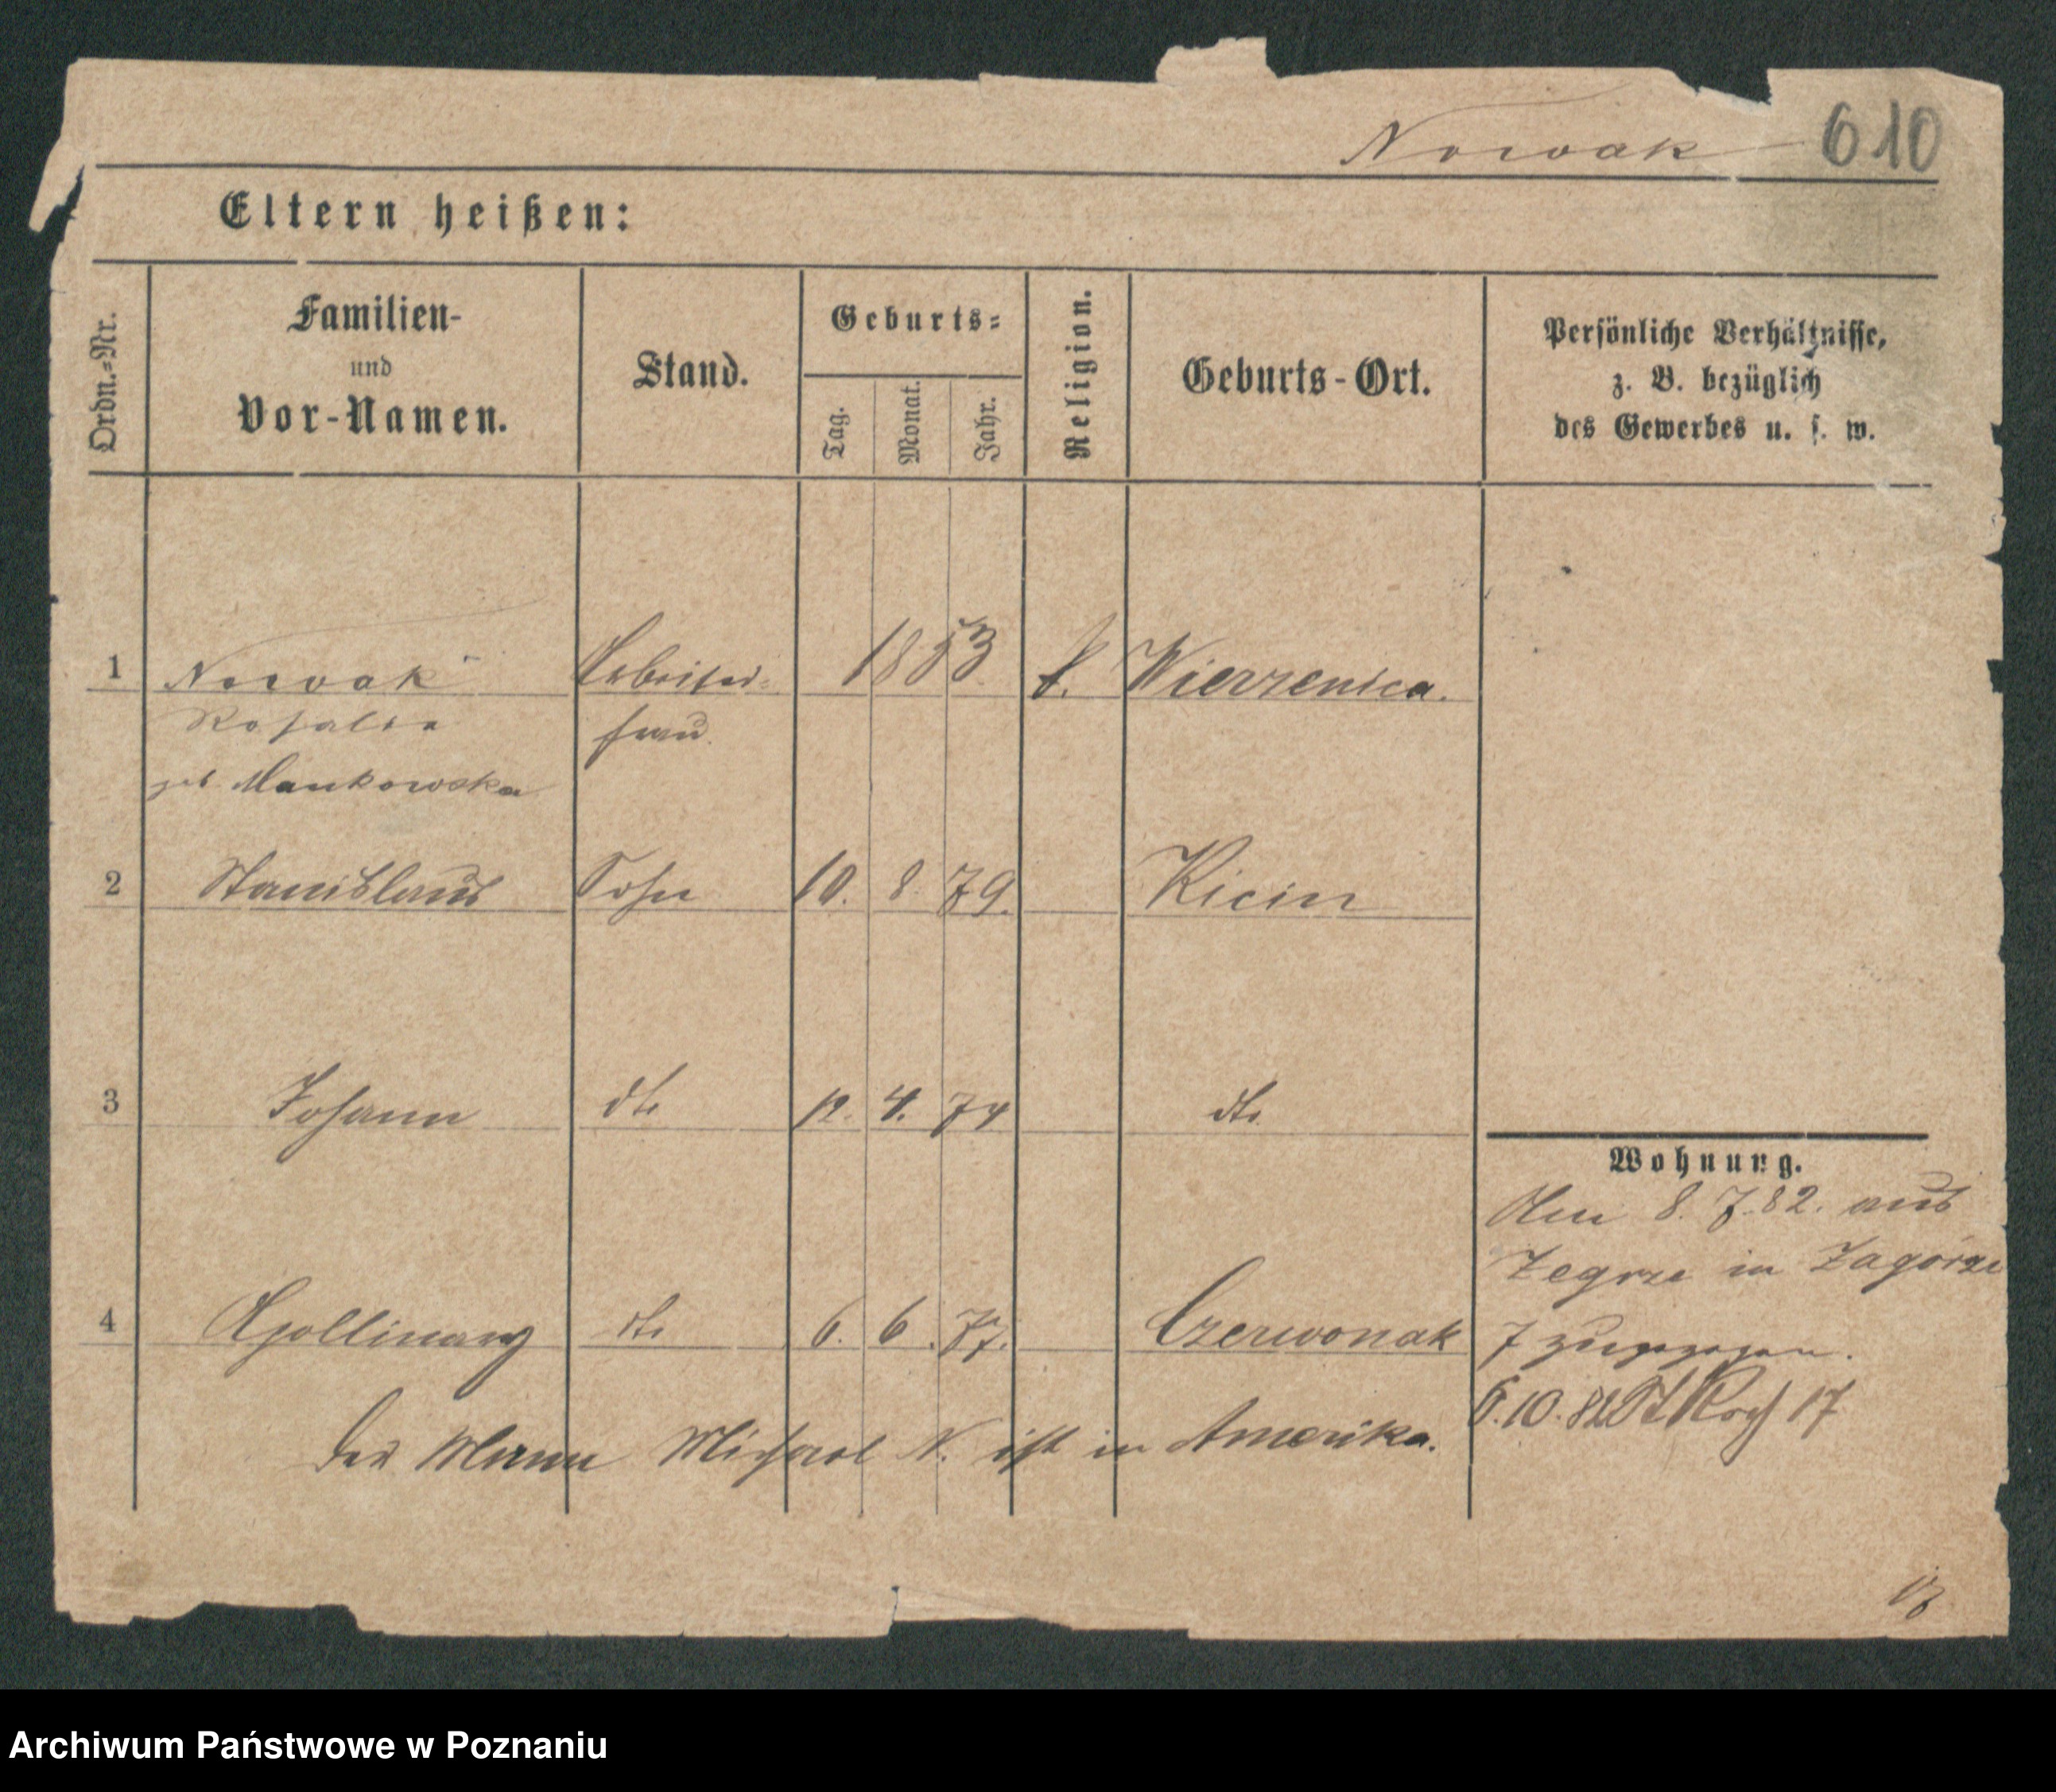 Nowak 610
Eltern heißen:
Ordn.-Nr.
Familien-
und
Vor-Namen.
Stand.
Geburts-
Tag.
Monat.
Jahr.
Religion.
Geburts-Ort.
Persönliche Verhältnisse,
z. B. bezüglich
des Gewerbes u. s. w.
1 Nowak Arbeiter- 1853 k. Wierzenica.
Rosalia frau
geb. Mankowska
2 Stanislaus Sohn 10. 8. 79. Kicin
3 Johann dto 12. 4. 74 dto
Wohnung.
Am 8. 7. 82. aus
Zegrze in Zagórze
4 Apollinary dto 6. 6. 77. Czerwonak 7 zugezogen.
6.10.82 St Roch 17
Der Mann Michael N. ist in Amerika.
Archiwum Państwowe w Poznaniu